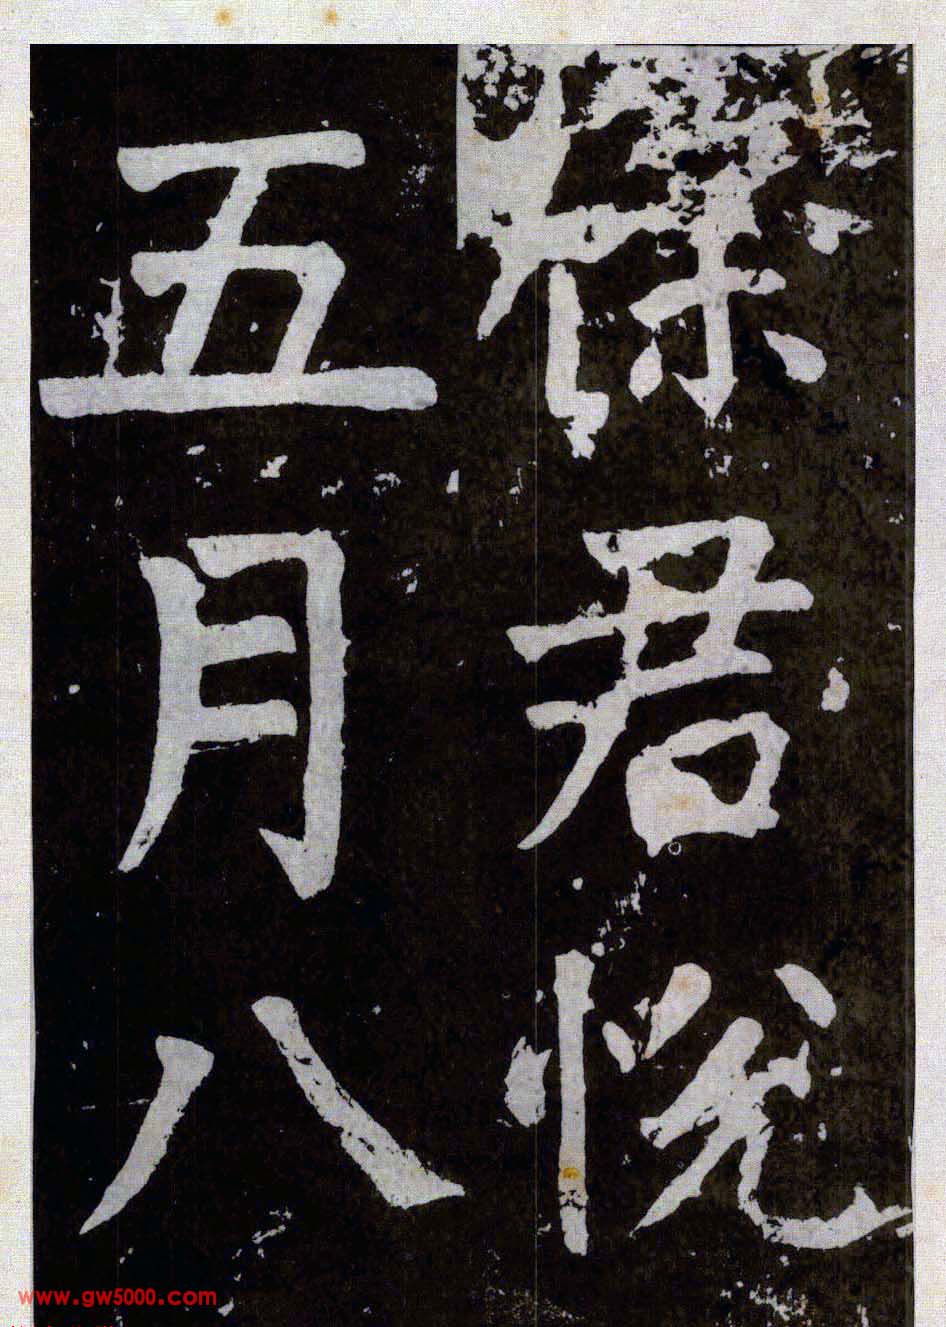 君悦
五月八
www.gw5000.com